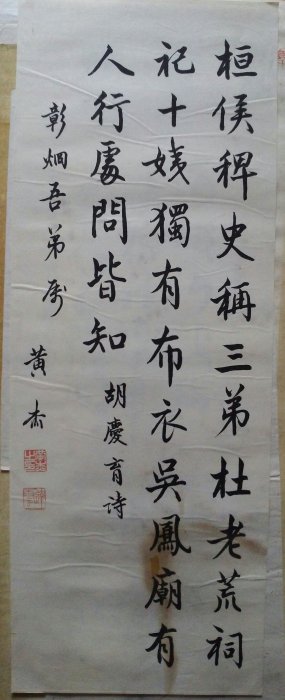 桓侯稗史稱三弟杜老荒祠
祀十姨獨有布衣吳鳳廟有
人行處問皆知
胡慶育詩
彰炯吾弟屬
黃杰